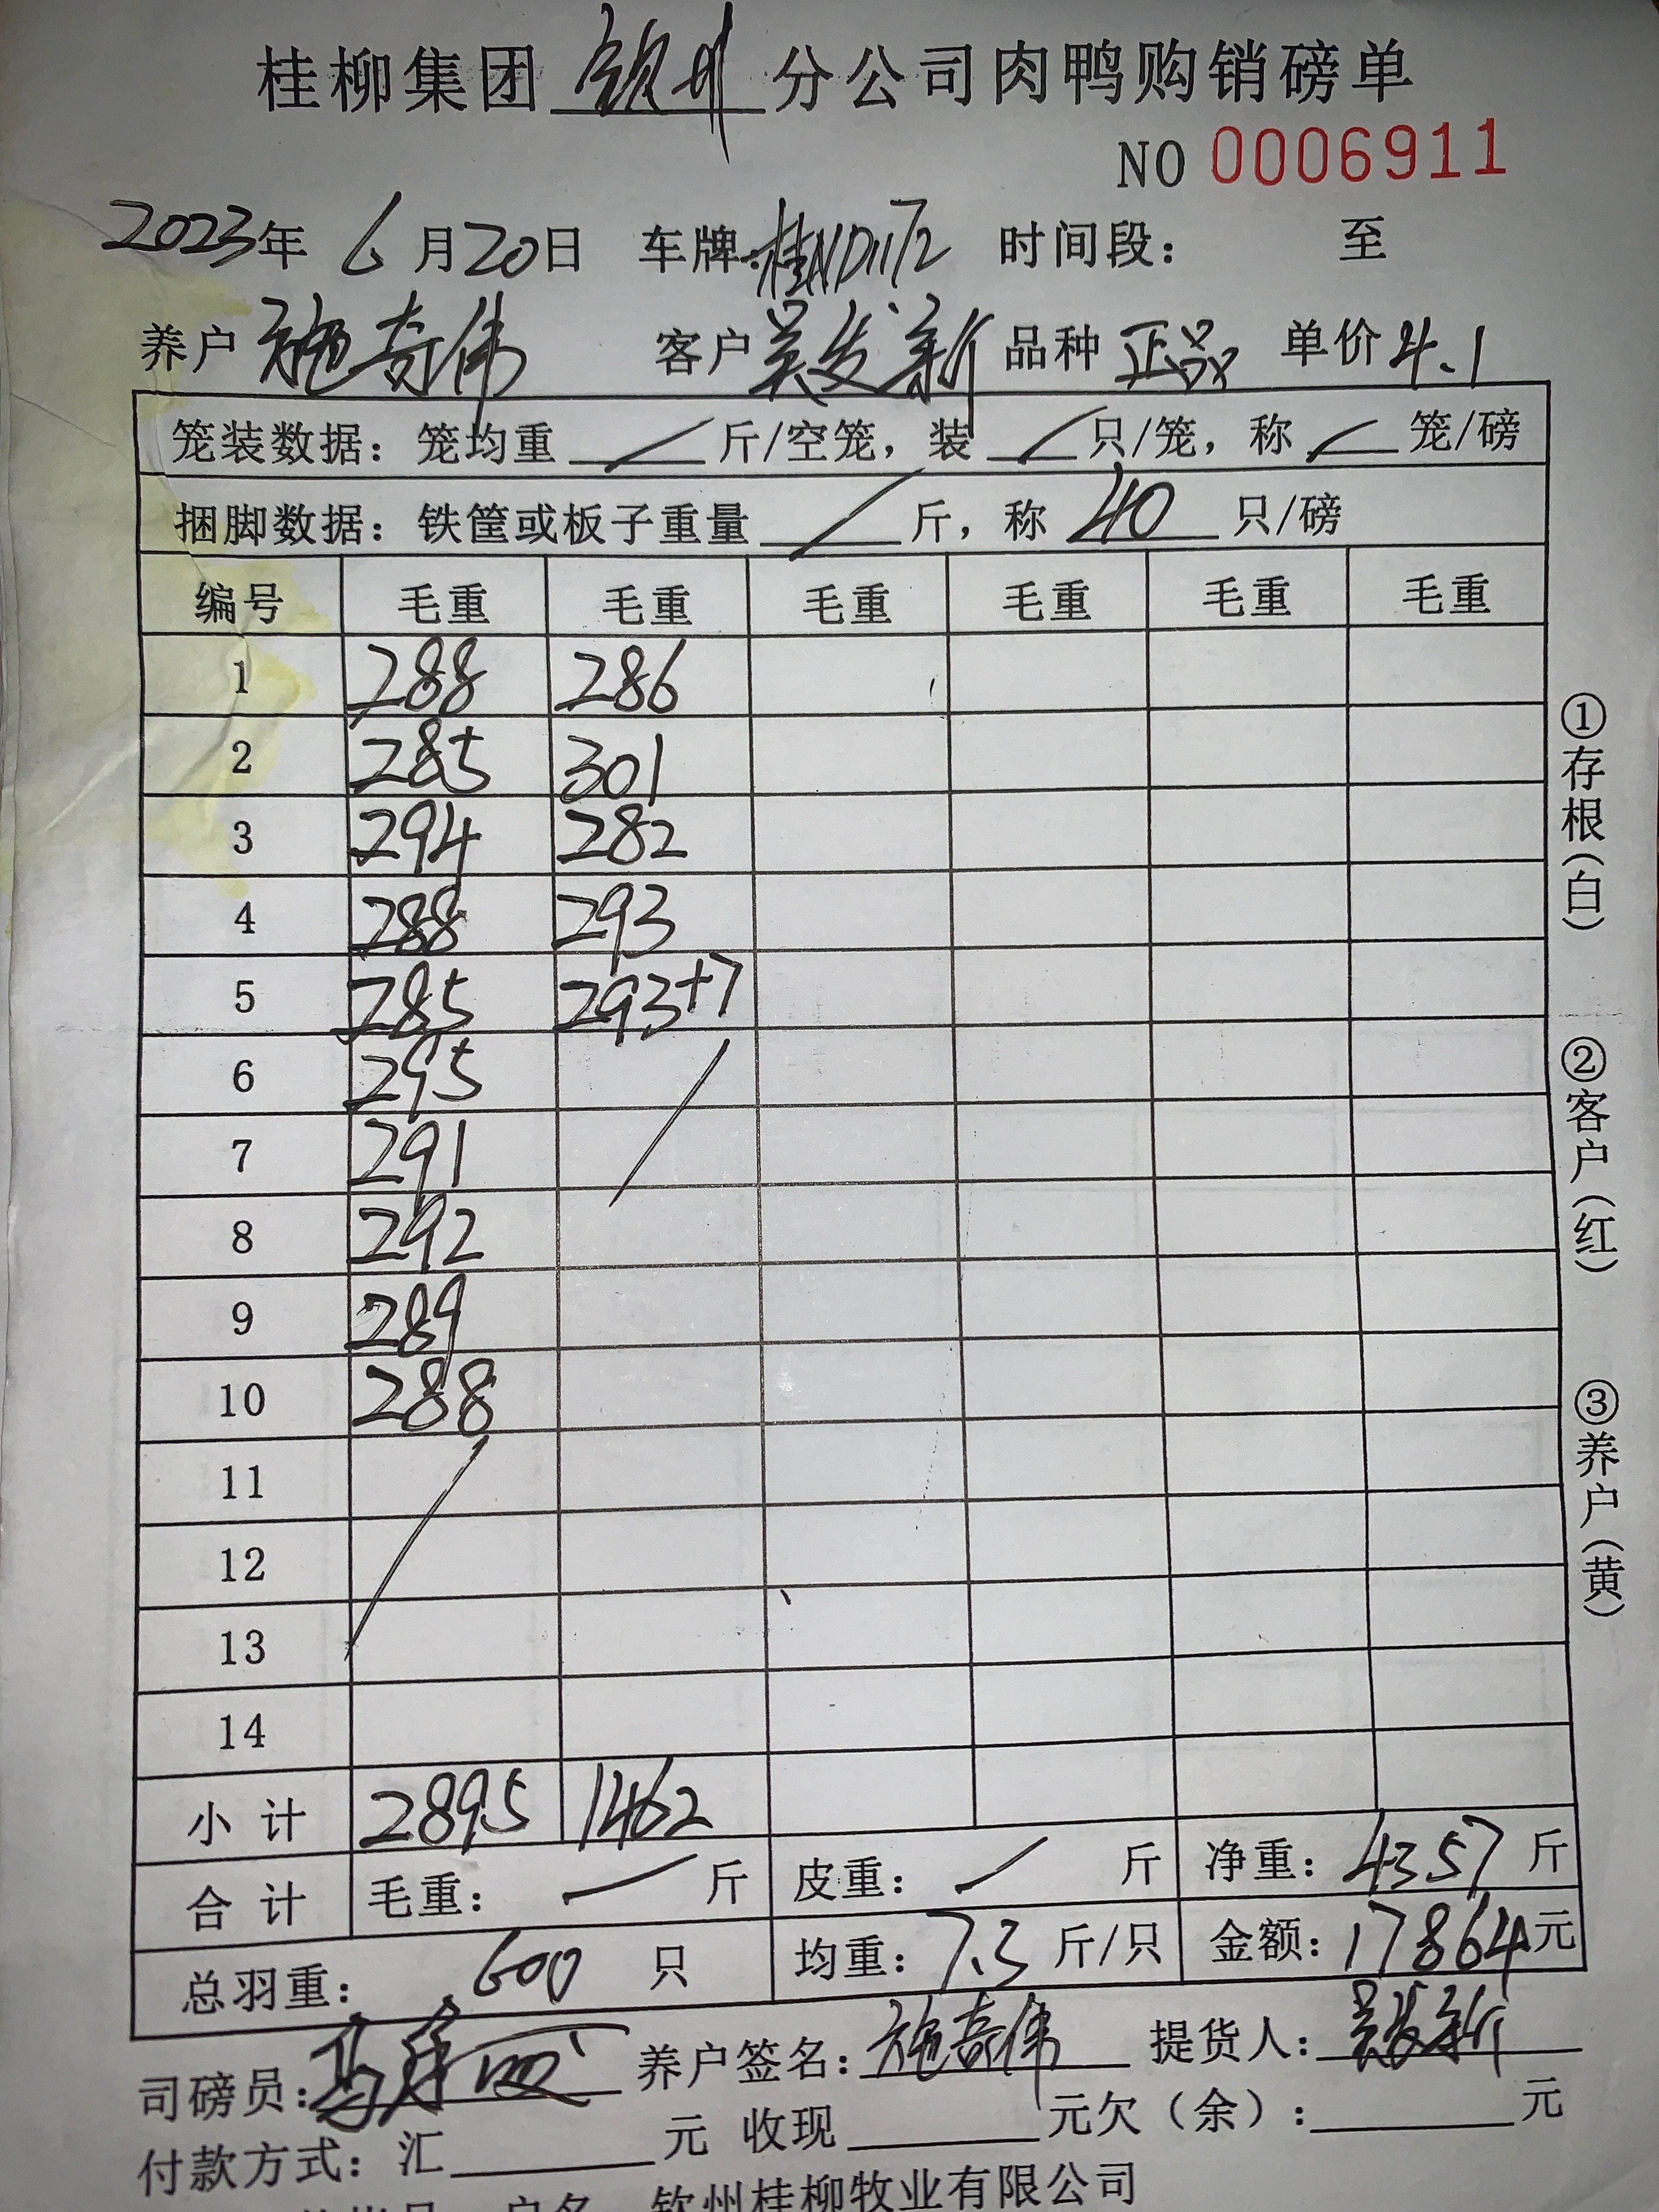 桂柳集团 钦州 分公司肉鸭购销磅单
NO 0006911
2023年 6月20日 车牌:桂ND1172 时间段: 至
养户 施奇伟 客户 吴发新 品种 正品 单价 4.1
笼装数据: 笼均重 / 斤/空笼, 装 / 只/笼, 称 / 笼/磅
捆脚数据: 铁筐或板子重量 / 斤, 称 40 只/磅
编号 毛重 毛重 毛重 毛重 毛重 毛重
1 288 286
2 285 301
3 294 282
4 288 293
5 285 293+7
6 295
7 291
8 292
9 289
10 288
11
12
13
14
小计 2895 1462
合计 毛重: / 斤 皮重: / 斤 净重: 4357 斤
总羽重: 600 只 均重: 7.3 斤/只 金额: 17864元
司磅员: 养户签名: 施奇伟 提货人: 吴发新
付款方式: 汇 元 收现 元欠(余): 元
钦州桂柳牧业有限公司
①存根(白)
②客户(红)
③养户(黄)